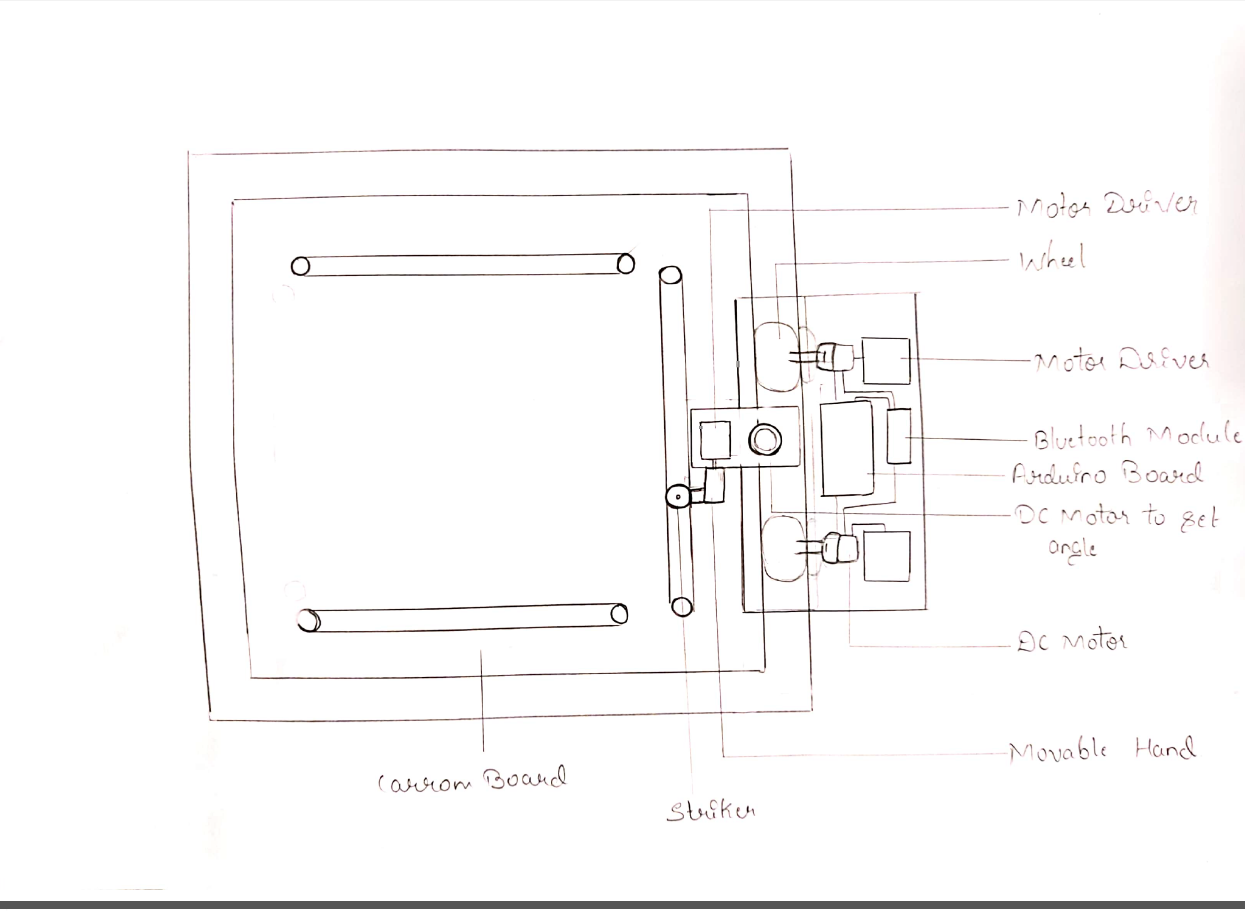 Motor Driver
Wheel
Motor Driver
Bluetooth Module
Arduino Board
DC Motor to get
angle
DC Motor
Movable Hand
Carrom Board
Striker